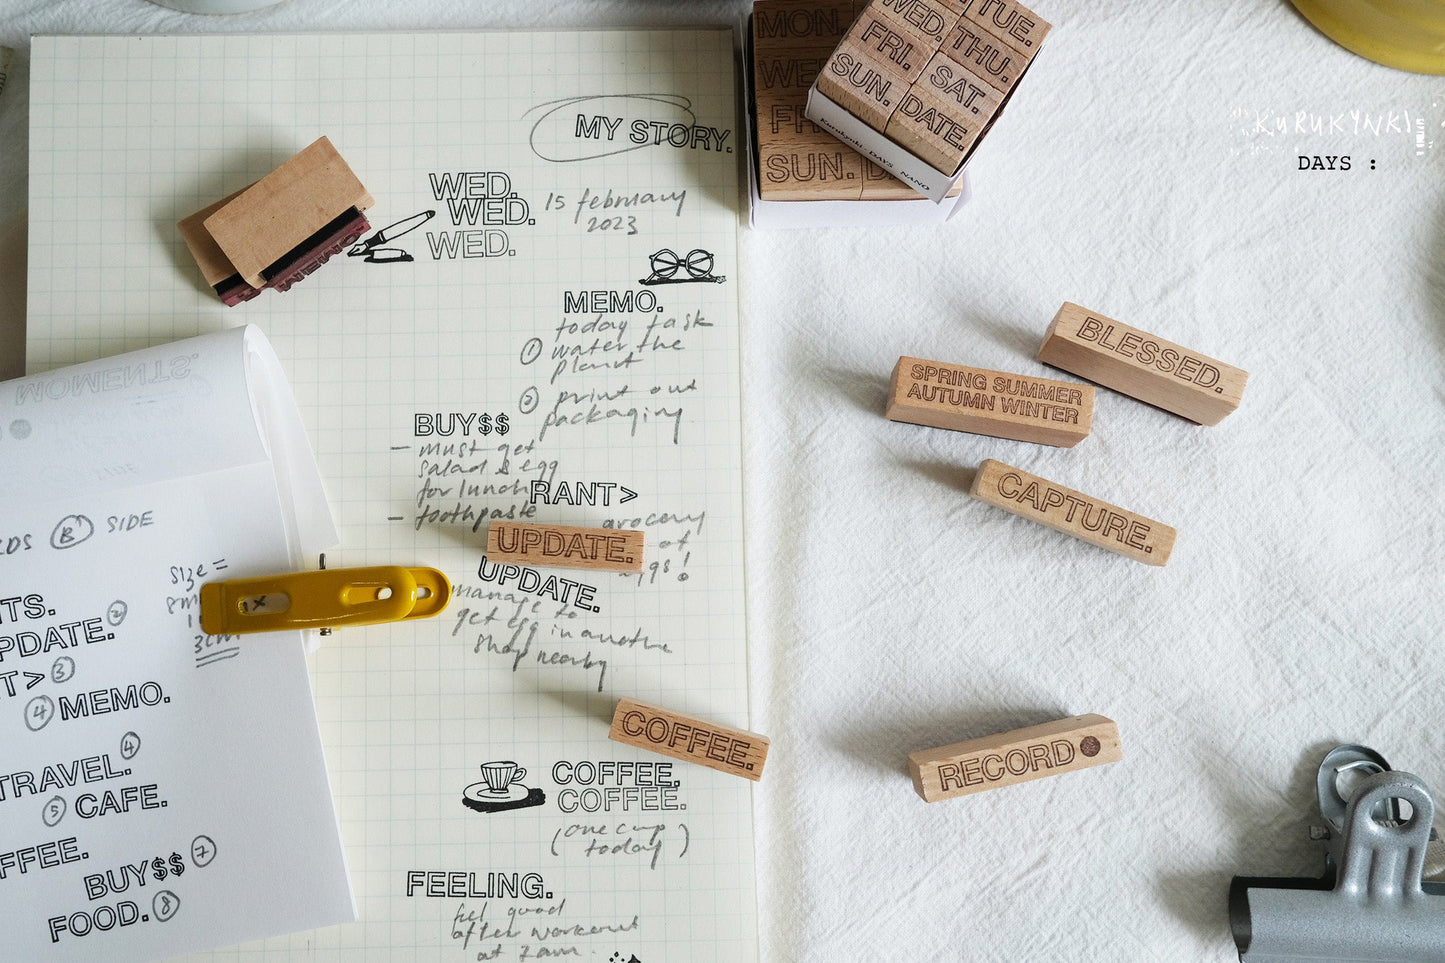 MY STORY.
WED.
WED.
WED.
15 february
2023
MEMO.
today task
① water the
plant
② print out
packaging
BUY$$
— must get
salad & egg
for lunch
— toothpaste
RANT>
grocery
UPDATE.
UPDATE.
manage to
get egg in another
shop nearby
COFFEE.
COFFEE.
COFFEE.
(one cup
today)
FEELING.
feel good
after workout
at 7am.
MOMENTS.
B SIDE
size =
3cm
UPDATE. ②
③
④ MEMO.
TRAVEL. ④
⑤ CAFE.
BUY$$ ⑦
FOOD. ⑧
MON.
SUN.
WED.
TUE.
FRI.
THU.
SUN.
SAT.
DATE.
Kurukynki. DAYS NANO
KURUKYNKI
DAYS :
BLESSED.
SPRING SUMMER
AUTUMN WINTER
CAPTURE.
RECORD